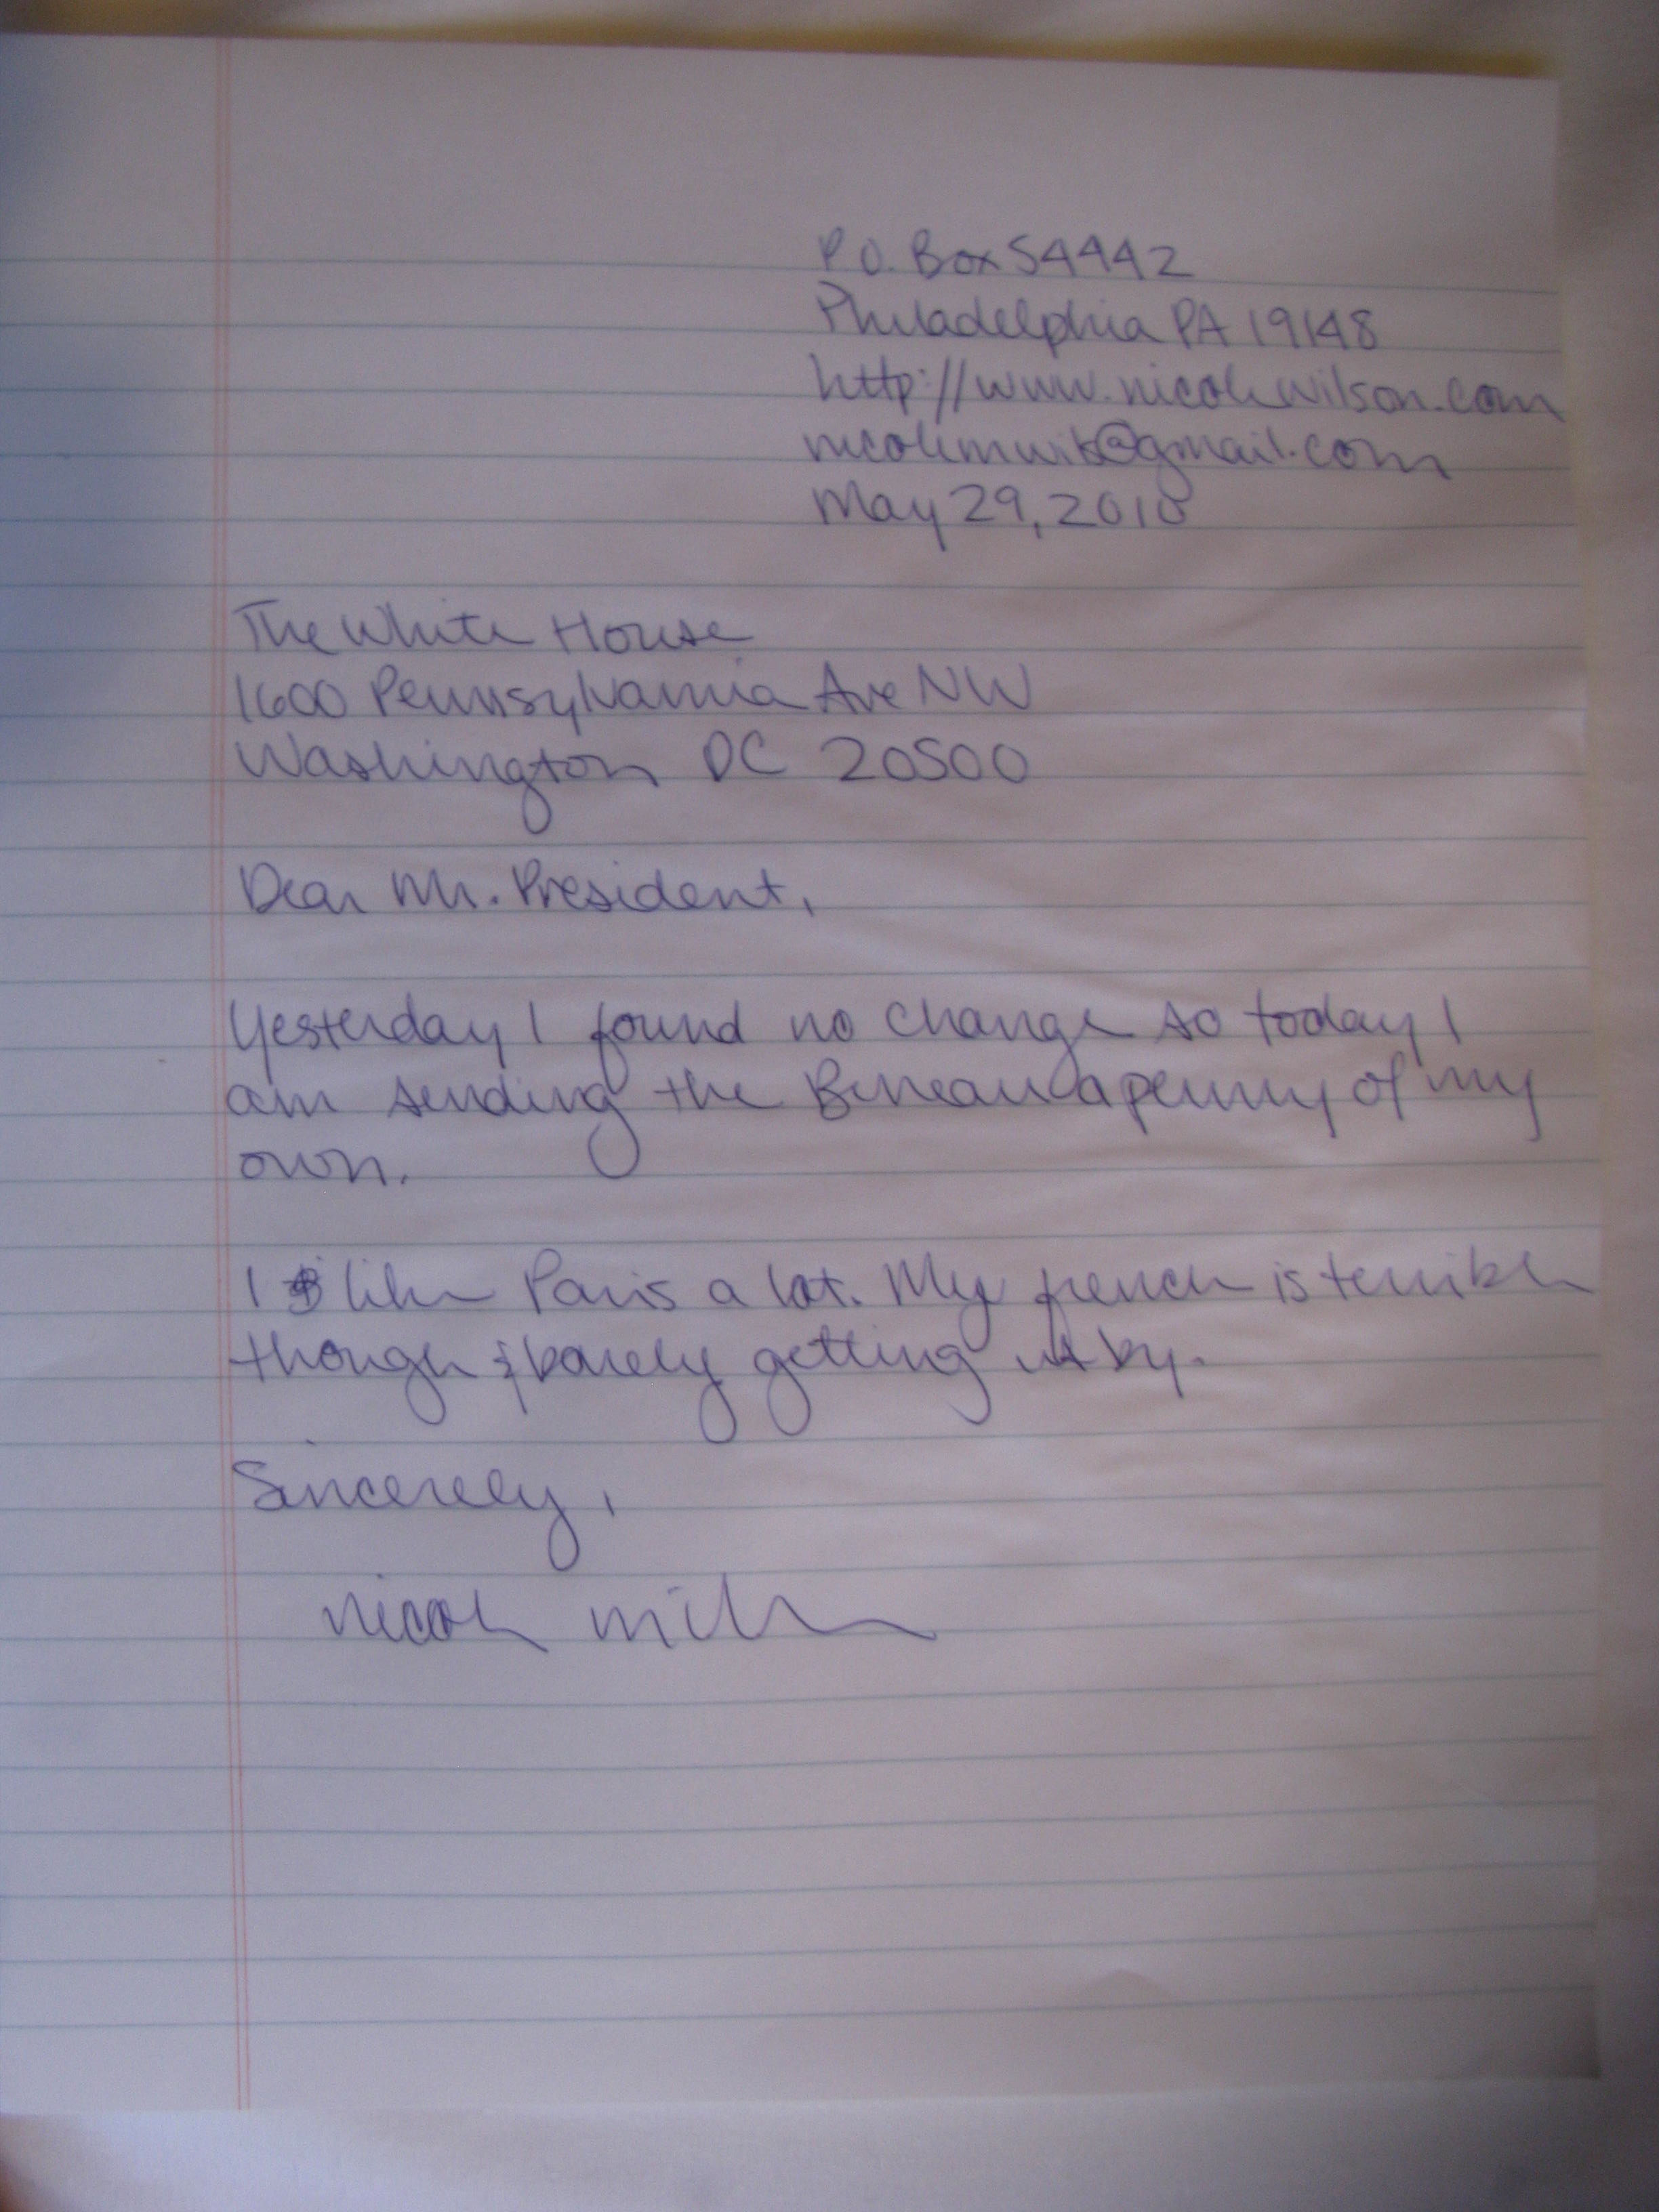 P.O. Box 54442
Philadelphia PA 19148
http://www.nicolewilson.com
nicolemwils@gmail.com
May 29, 2010
The White House
1600 Pennsylvania Ave NW
Washington DC 20500
Dear Mr. President,
Yesterday I found no change so today I
am sending the Bureau a penny of my
own.
I like Paris a lot. My french is terrible
though & barely getting by.
Sincerely,
Nicole